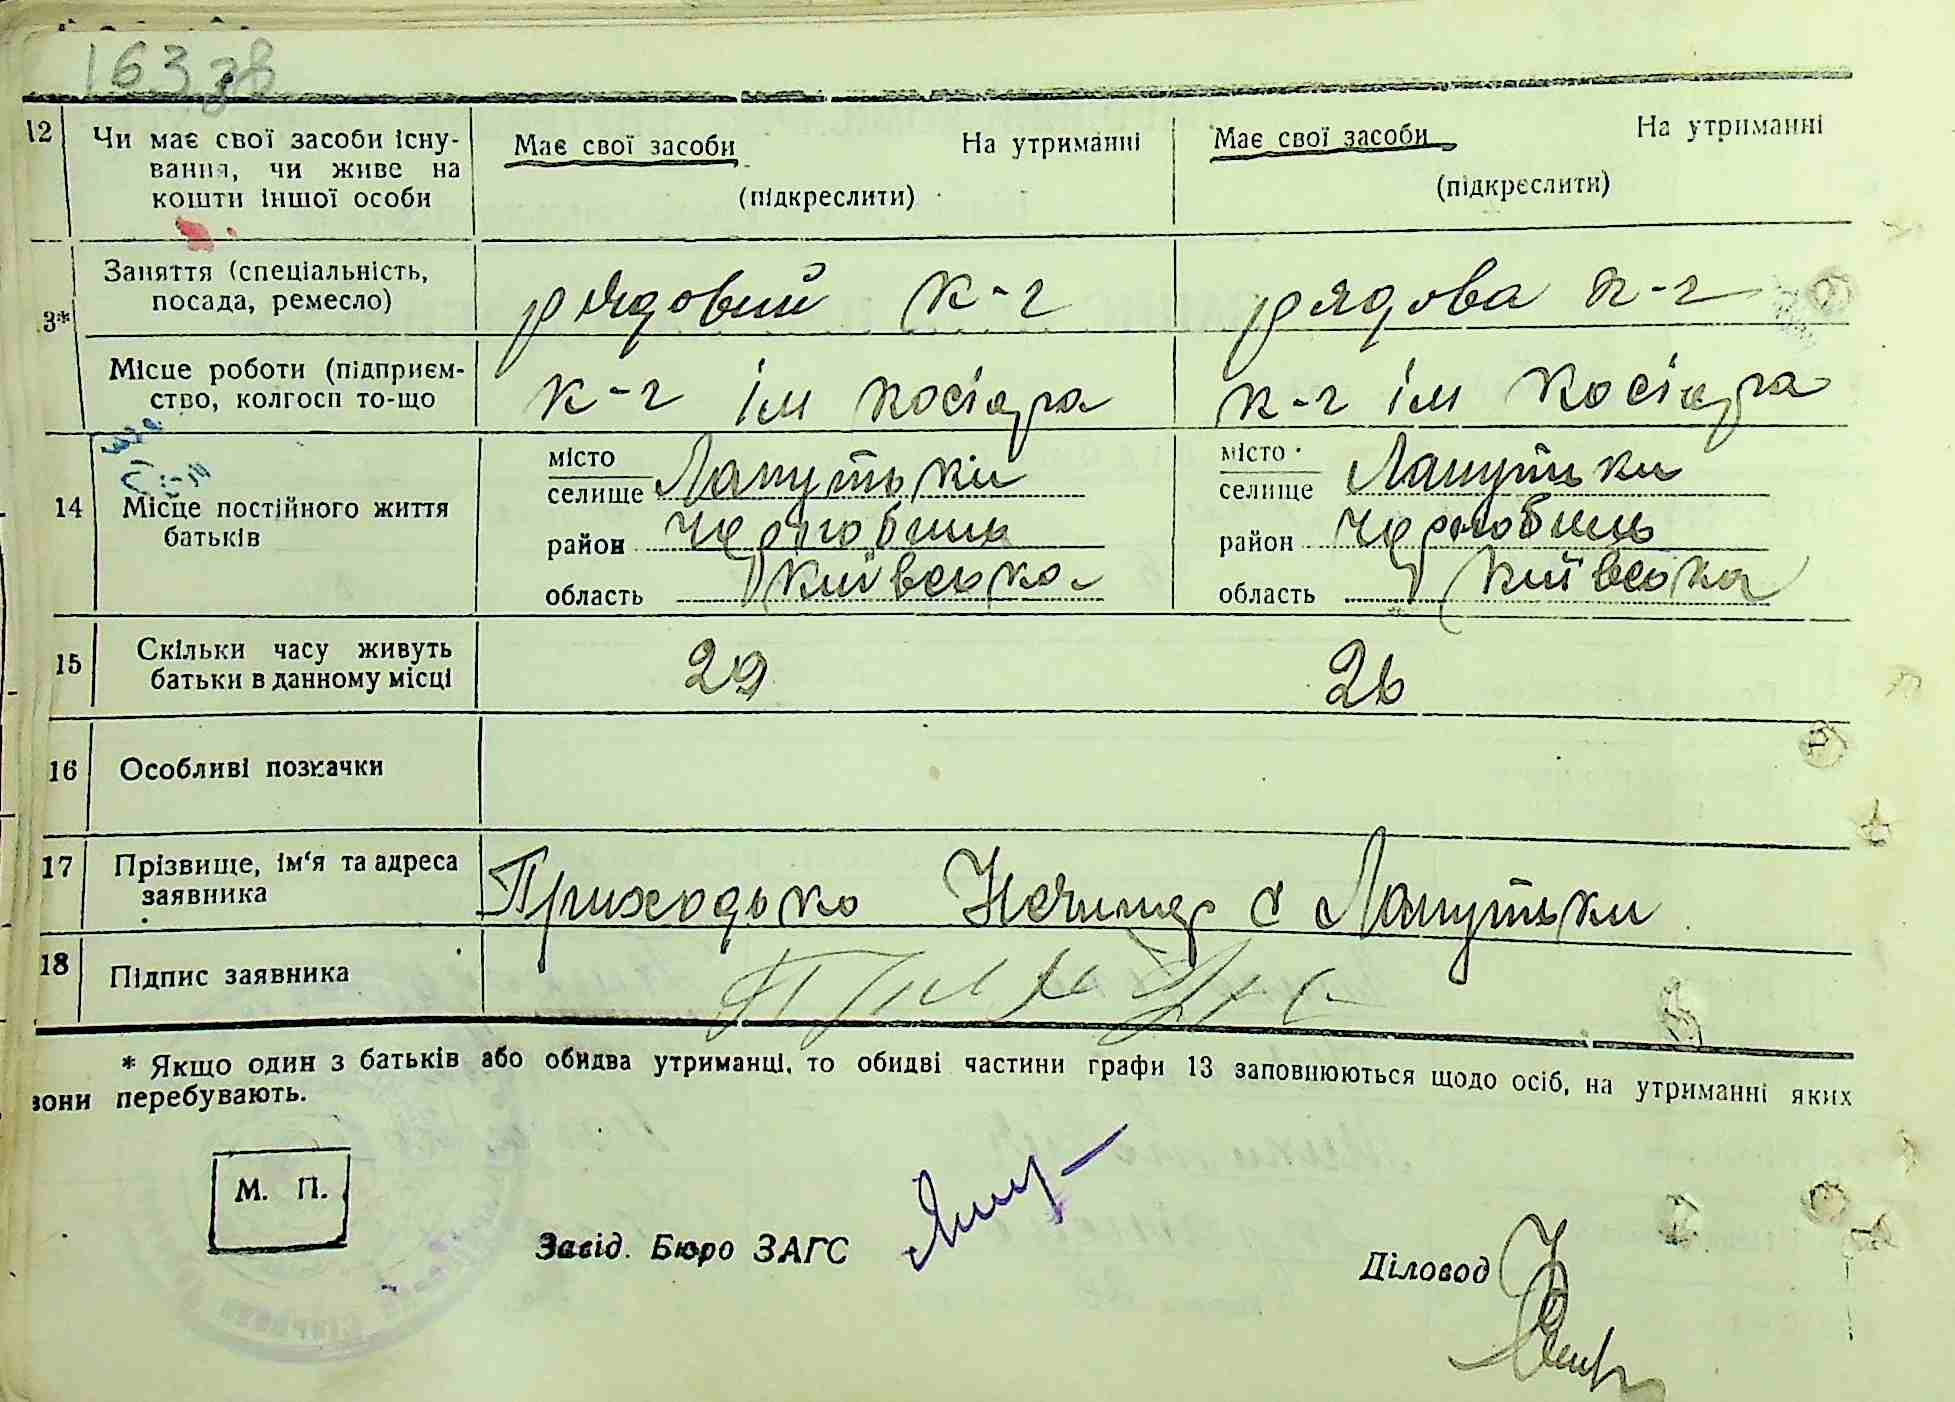 163 зв
12 Чи має свої засоби існу- Має свої засоби На утриманні Має свої засоби На утриманні
вання, чи живе на
кошти іншої особи (підкреслити) (підкреслити)
Заняття (спеціальність,
посада, ремесло) рядовий к-г рядова к-г
3*
Місце роботи (підприєм-
ство, колгосп то-що к-г ім косіора к-г ім косіора
місто місто
селище Лапутьки селище Лапутьки
14 Місце постійного життя
батьків район Чернобиль район Чернобиль
область київська область київська
15 Скільки часу живуть
батьки в данному місці 29 26
16 Особливі позначки
17 Прізвище, ім'я та адреса
заявника Приходько с Лапутьки
18 Підпис заявника
* Якщо один з батьків або обидва утриманці, то обидві частини графи 13 заповнюються щодо осіб, на утриманні яких
вони перебувають.
М. П.
Завід. Бюро ЗАГС
Діловод